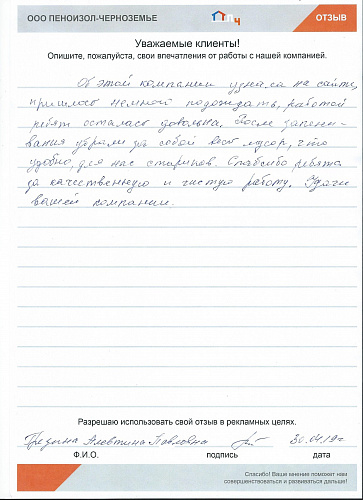 ООО ПЕНОИЗОЛ-ЧЕРНОЗЕМЬЕ
ППЧ
ОТЗЫВ
Уважаемые клиенты!
Опишите, пожалуйста, свои впечатления от работы с нашей компанией.
Об этой компании узнала на сайте,
пришлось немного подождать, работой
ребят осталась довольна. После запени-
вания убрали за собой весь мусор, что
удобно, для нас стариков. Спасибо ребята
за качественную и чистую работу. Удачи
вашей компании.
Разрешаю использовать свой отзыв в рекламных целях.
Алевтина Павловна 30.04.19г.
Ф.И.О. подпись дата
Спасибо! Ваше мнение поможет нам
совершенствоваться и развиваться дальше!